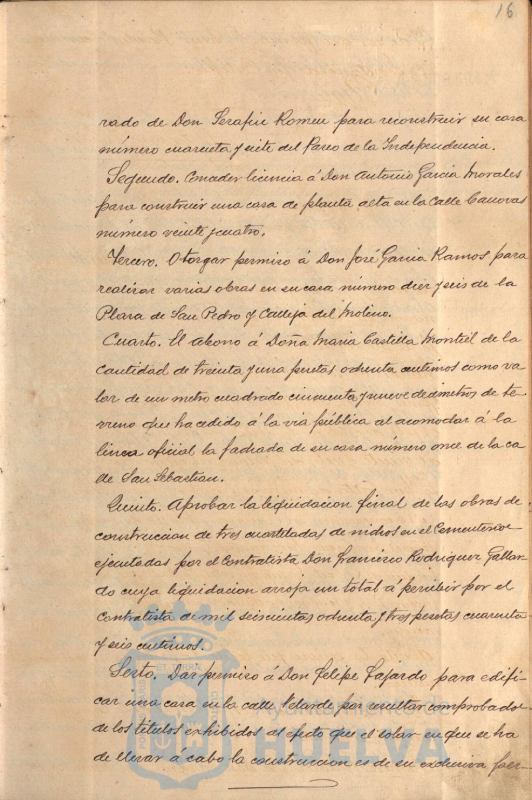 16
rado de Don Serafin Romeu para reconstruir su casa
número cuarenta y siete del Paseo de la Independencia.
Segundo. Conceder licencia á Don Antonio Garcia Morales
para construir una casa de planta alta en la calle Canovas
número veinte y cuatro.
Tercero. Otorgar permiso á Don José Garcia Ramos para
realizar varias obras en su casa número diez y seis de la
Plaza de San Pedro y Calleja del Molino.
Cuarto. El abono á Doña Maria Castilla Montiel de la
cantidad de treinta y una pesetas ochenta centimos como va-
lor de un metro cuadrado cincuenta y nueve decimetros de te-
rreno que ha cedido á la via pública al acomodar á la
linea oficial la fachada de su casa número once de la ca
de San Sebastian.
Quinto. Aprobar la liquidacion final de las obras de
construccion de tres cuarteladas de nichos en el Cementerio
ejecutadas por el contratista Don Francisco Rodriguez Gallar-
do cuya liquidacion arroja un total á percibir por el
contratista de mil seiscientas ochenta y tres pesetas cuarenta
y seis centimos.
Sesto. Dar permiso á Don Felipe Fajardo para edifi-
car una casa en la calle Velarde por resultar comprobado
de los titulos exhibidos al efecto que el solar en que se ha
de llevar á cabo la construccion es de su exclusiva
Ayuntamiento de
HUELVA